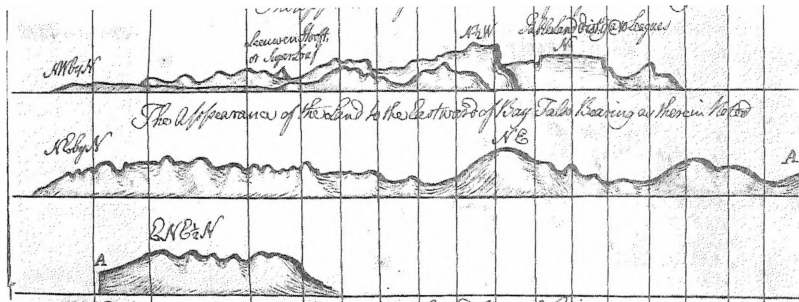 Leeuwen Hooft
or Sugerloaf
N½W
Tableland dist. @ 10 Leagues
N
NWbyN
The Appearance of the Land to the Eastward of Bay Falso Bearing as therein Noted
NEbyN
NE
A
ENE½N
A